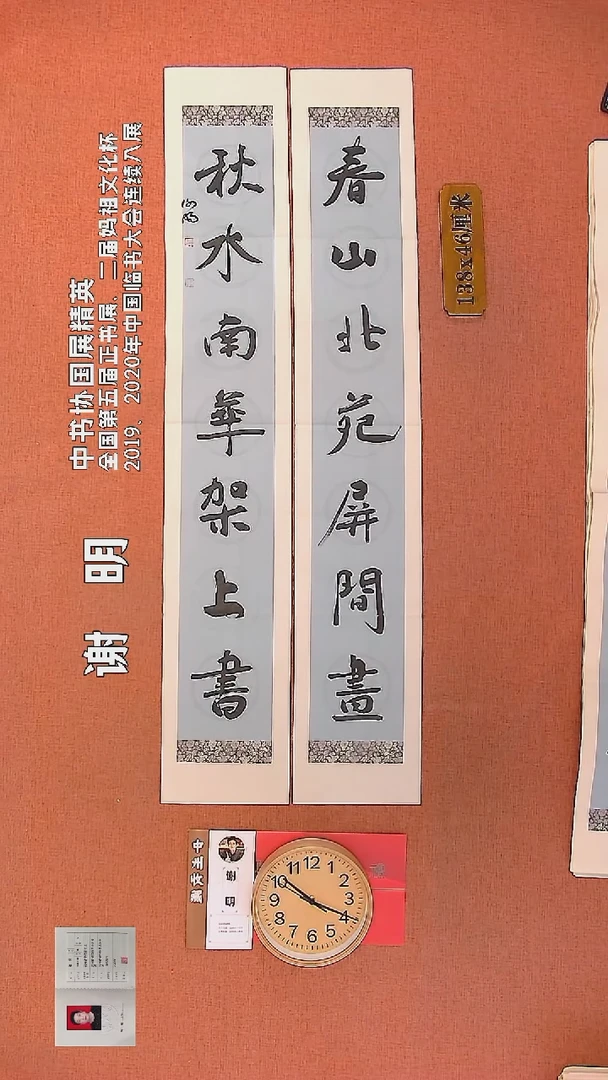 春山北苑屏間畫
秋水南華架上書
138x46厘米
中书协国展精英
全国第五届正书展、二届妈祖文化杯
2019、2020年中国临书大会连续入展
谢 明
谢明
12
1
2
3
4
5
6
7
8
9
10
11